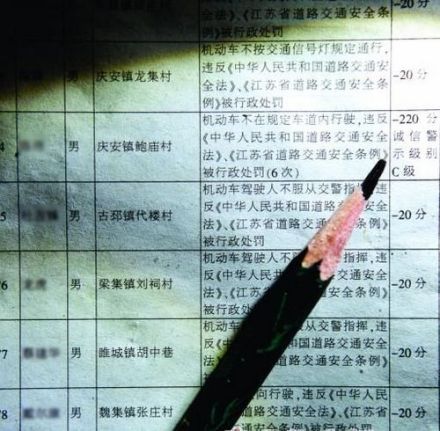 全法》、《江苏省道路交通安全条
例》被行政处罚
-20分
男
庆安镇龙集村
机动车不按交通信号灯规定通行,
违反《中华人民共和国道路交通安
全法》、《江苏省道路交通安全条
例》被行政处罚
-20分
4
男
庆安镇鲍庙村
机动车不在规定车道内行驶,违反
《中华人民共和国道路交通安全
法》、《江苏省道路交通安全条例》
被行政处罚(6次)
-220分
诚信警
示级别
C级
5
男
古邳镇代楼村
机动车驾驶人不服从交警指挥,违
反《中华人民共和国道路交通安全
法》、《江苏省道路交通安全条例》
被行政处罚
-20分
76
男
梁集镇刘祠村
机动车驾驶人不服从交警指挥,违
反《中华人民共 国道路交通安全
法》、《江苏省 交通安全条例》
被行政处罚
-20分
77
男
睢城镇胡中巷
机动车 从交警指挥,违
反《中 和国道路交通安全
法》、 省道路交通安全条例》
被行政处罚
-20分
78
男
魏集镇张庄村
向行驶,违反《中华人民
道路交通安全法》、《江苏省
交通安全条例》被行政处罚
-20分